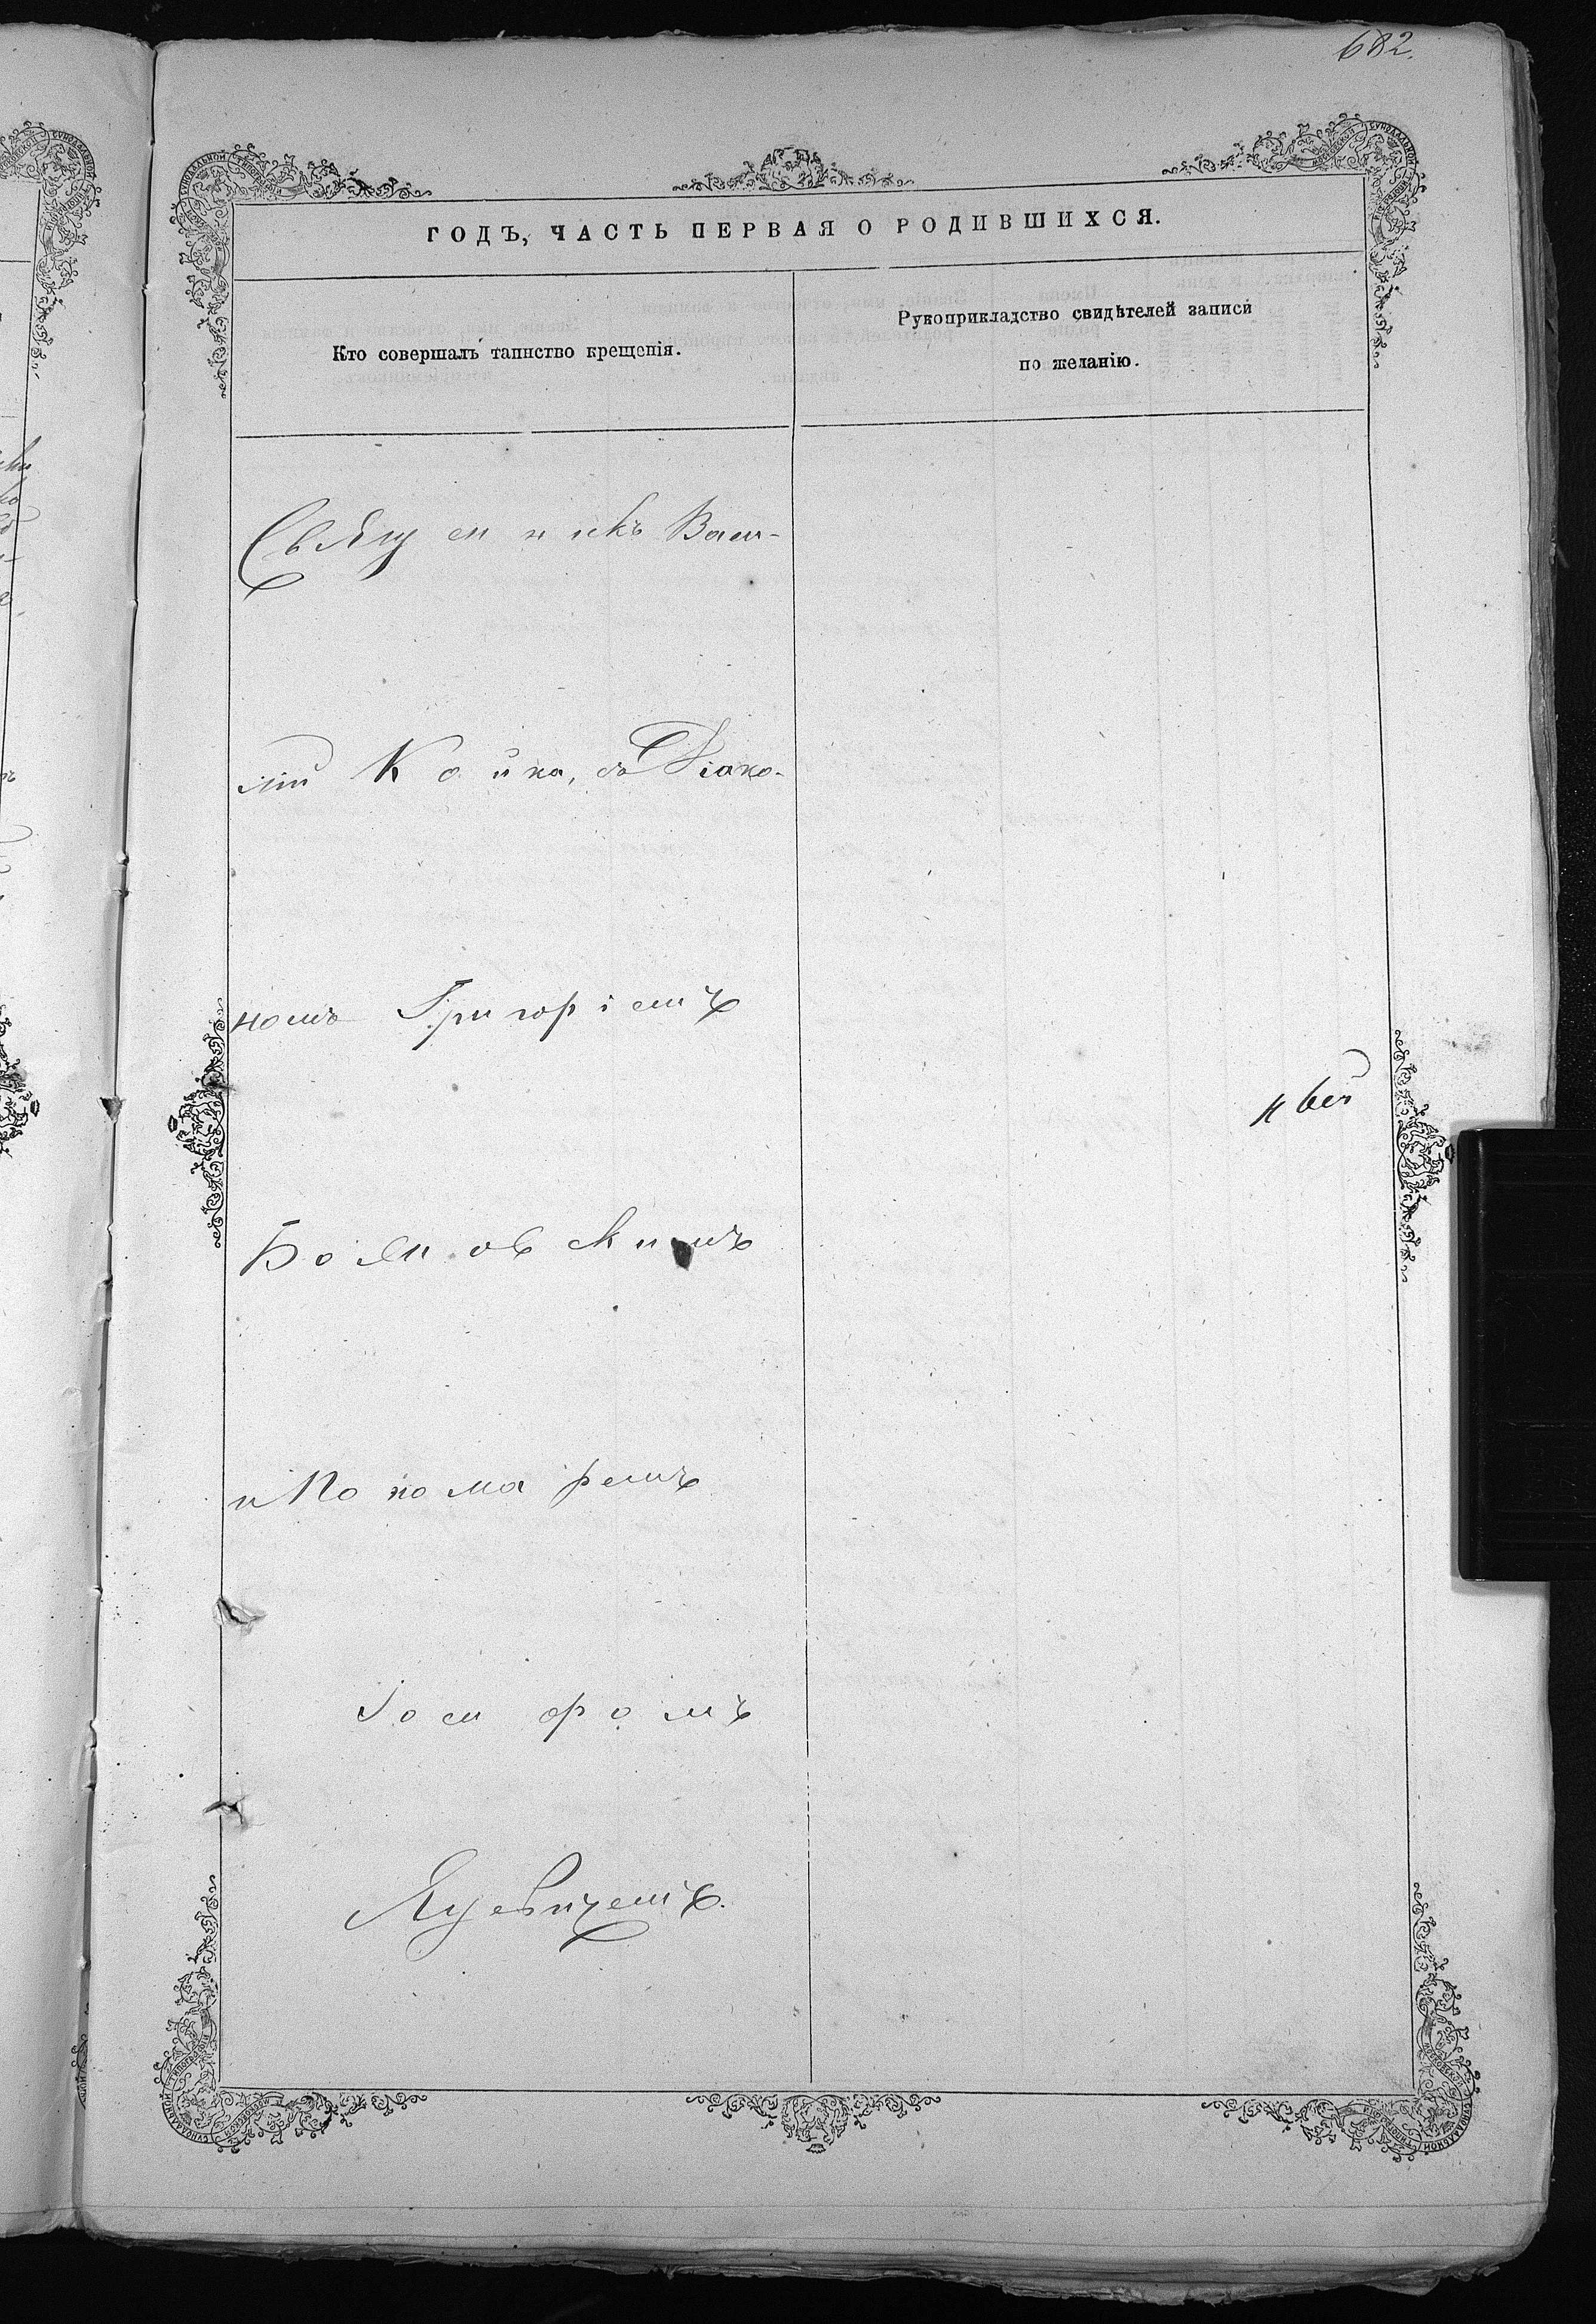 682.
ГОДЪ, ЧАСТЬ ПЕРВАЯ О РОДИВШИХСЯ.
Кто совершалъ таинство крещенія.
Рукоприкладство свидѣтелей записи
по желанію.
Священникъ Васи-
лій Койко, съ Діако-
номъ Григоріемъ
Бояновскимъ
и Пономаремъ
Іосифомъ